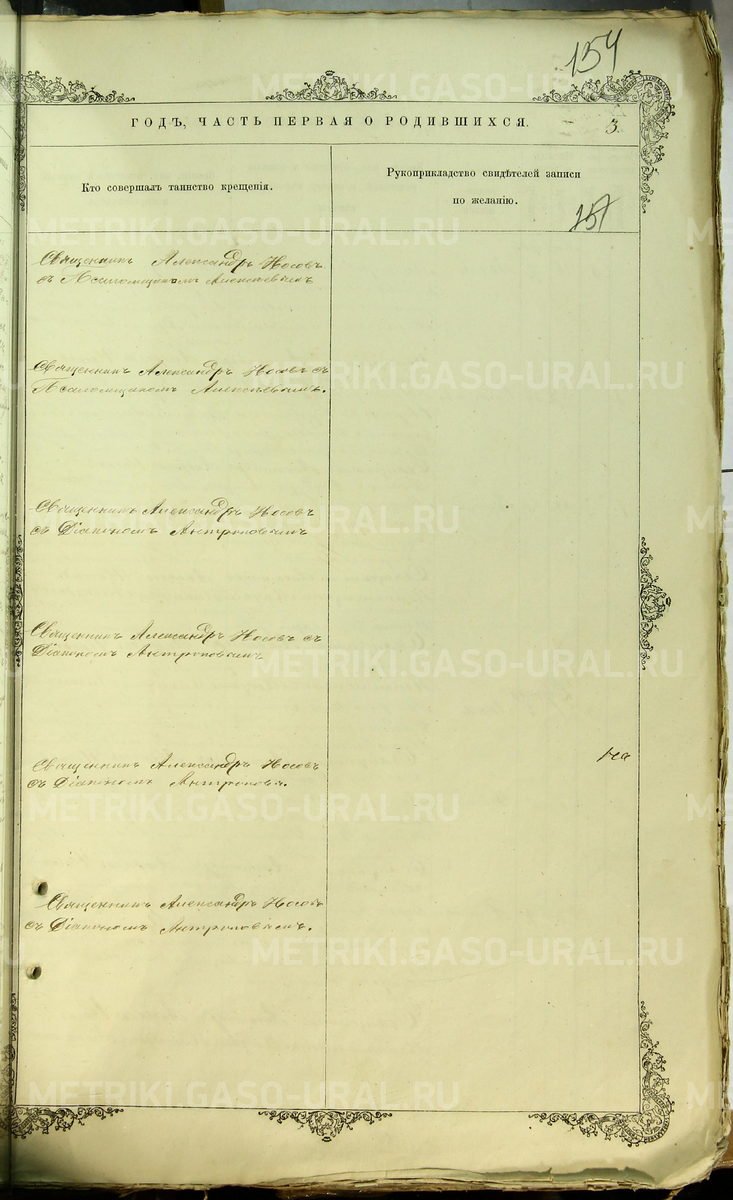 154
ГОДЪ, ЧАСТЬ ПЕРВАЯ О РОДИВШИХСЯ.
3.
Кто совершалъ таинство крещенія.
Рукоприкладство свидѣтелей записи
по желанію.
157
Священникъ Александръ Носовъ
съ Псаломщикомъ Алексѣевымъ
Священникъ Александръ Носовъ съ
Псаломщикомъ Алексѣевымъ.
Священникъ Александръ Носовъ
съ Діакономъ Антроповымъ
Священникъ Александръ Носовъ съ
Діакономъ Антроповымъ
Священникъ Александръ Носовъ
съ Діакономъ
Священникъ Александръ Носовъ
съ Діакономъ Антроповымъ.
METRIKI.GASO-URAL.RU